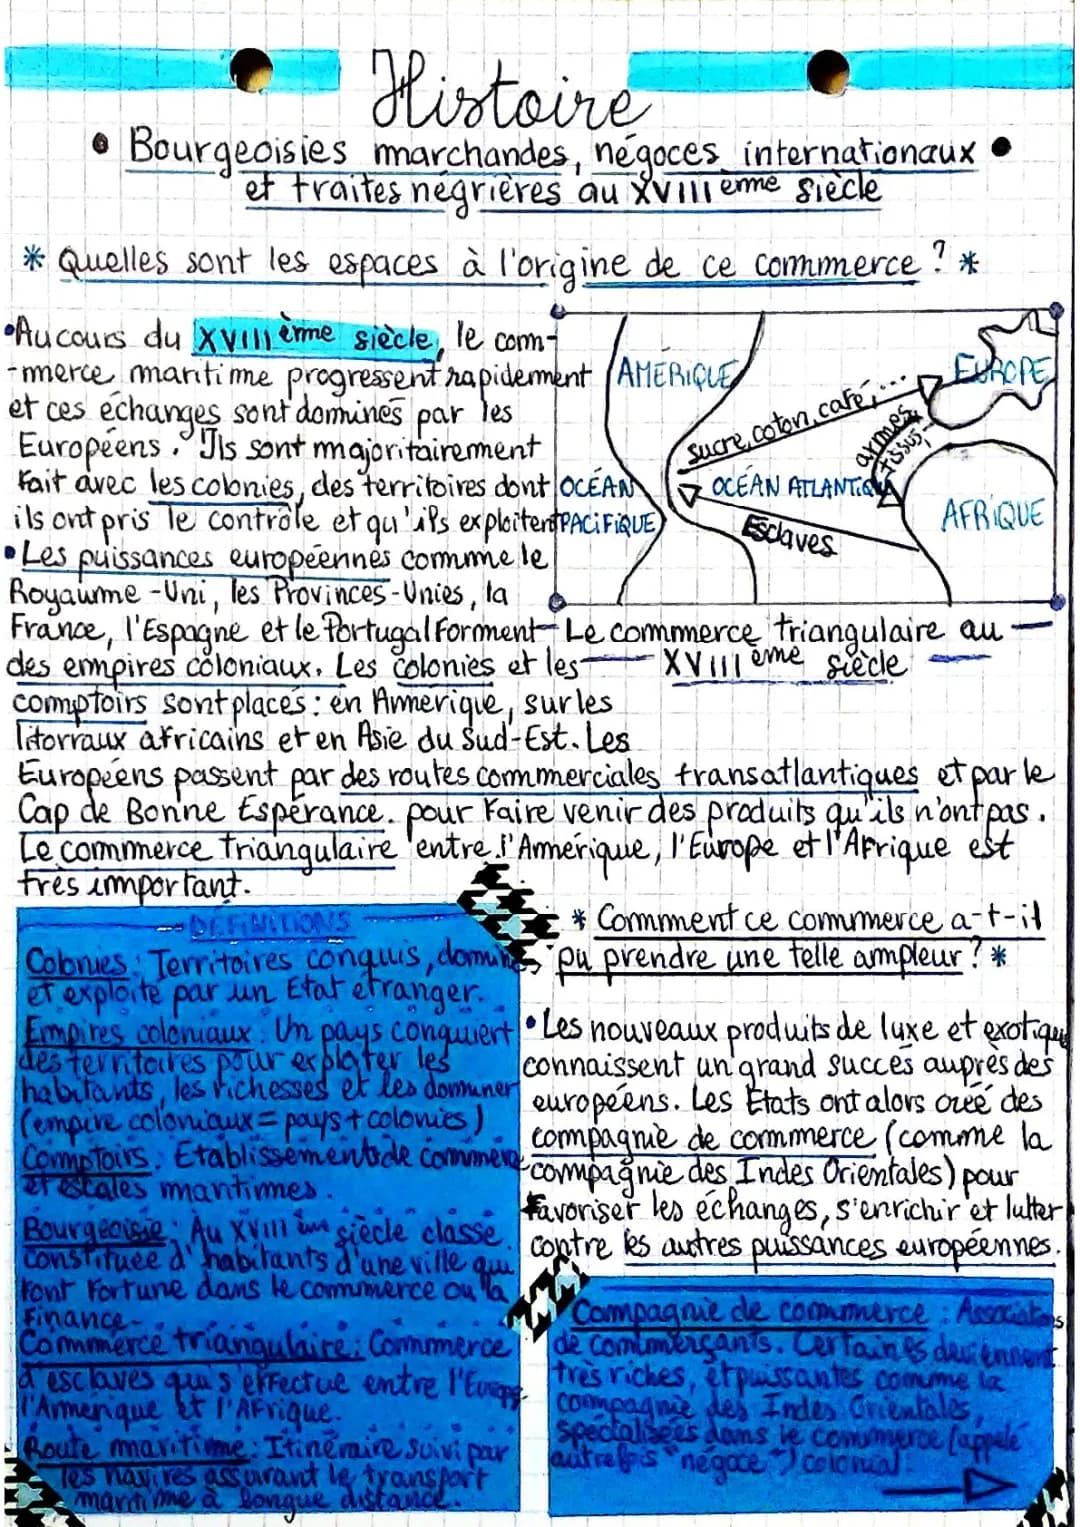 Histoire
• Bourgeoisies marchandes, négoces internationaux •
et traites négrières au XVIIIème siècle
* Quelles sont les espaces à l'origine de ce commerce ? *
• Au cours du XVIIIème siècle, le com-
-merce maritime progressent rapidement
et ces échanges sont dominés par les
Européens. Ils sont majoritairement
fait avec les colonies, des territoires dont
ils ont pris le contrôle et qu'ils exploitent
• Les puissances européennes comme le
Royaume-Uni, les Provinces-Unies, la
France, l'Espagne et le Portugal forment
des empires coloniaux. Les colonies et les
comptoirs sont placés : en Amérique, sur les
litorraux africains et en Asie du Sud-Est. Les
Européens passent par des routes commerciales transatlantiques et par le
Cap de Bonne Espérance. pour faire venir des produits qu'ils n'ont pas.
Le commerce triangulaire entre l'Amérique, l'Europe et l'Afrique est
très important.
AMÉRIQUE
EUROPE
sucre, coton, café, ...
armes
tissus
OCÉAN
PACIFIQUE
OCÉAN ATLANTIQUE
AFRIQUE
Esclaves
Le commerce triangulaire au
XVIIIème siècle
DÉFINITIONS
Colonies : Territoires conquis, dominés
et exploité par un Etat étranger.
Empires coloniaux : Un pays conquiert
des territoires pour exploiter les
habitants, les richesses et les dominer
(empire coloniaux = pays + colonies)
Comptoirs : Etablissements de commerce
et escales maritimes.
Bourgeoisie : Au XVIIIème siècle classe
constituée d'habitants d'une ville qui
font fortune dans le commerce ou la
Finance.
Commerce triangulaire : Commerce
d'esclaves qui s'effectue entre l'Europe,
l'Amérique et l'Afrique.
Route maritime : Itinéraire suivi par
les navires assurant le transport
maritime à longue distance.
* Comment ce commerce a-t-il
pu prendre une telle ampleur ? *
• Les nouveaux produits de luxe et exotique
connaissent un grand succès auprès des
européens. Les Etats ont alors créé des
compagnie de commerce (comme la
compagnie des Indes Orientales) pour
favoriser les échanges, s'enrichir et lutter
contre les autres puissances européennes.
Compagnie de commerce : Associations
de commerçants. Certaines deviennent
très riches, et puissantes comme la
compagnie des Indes Orientales,
spécialisées dans le commerce (appelé
autrefois "négoce") colonial.